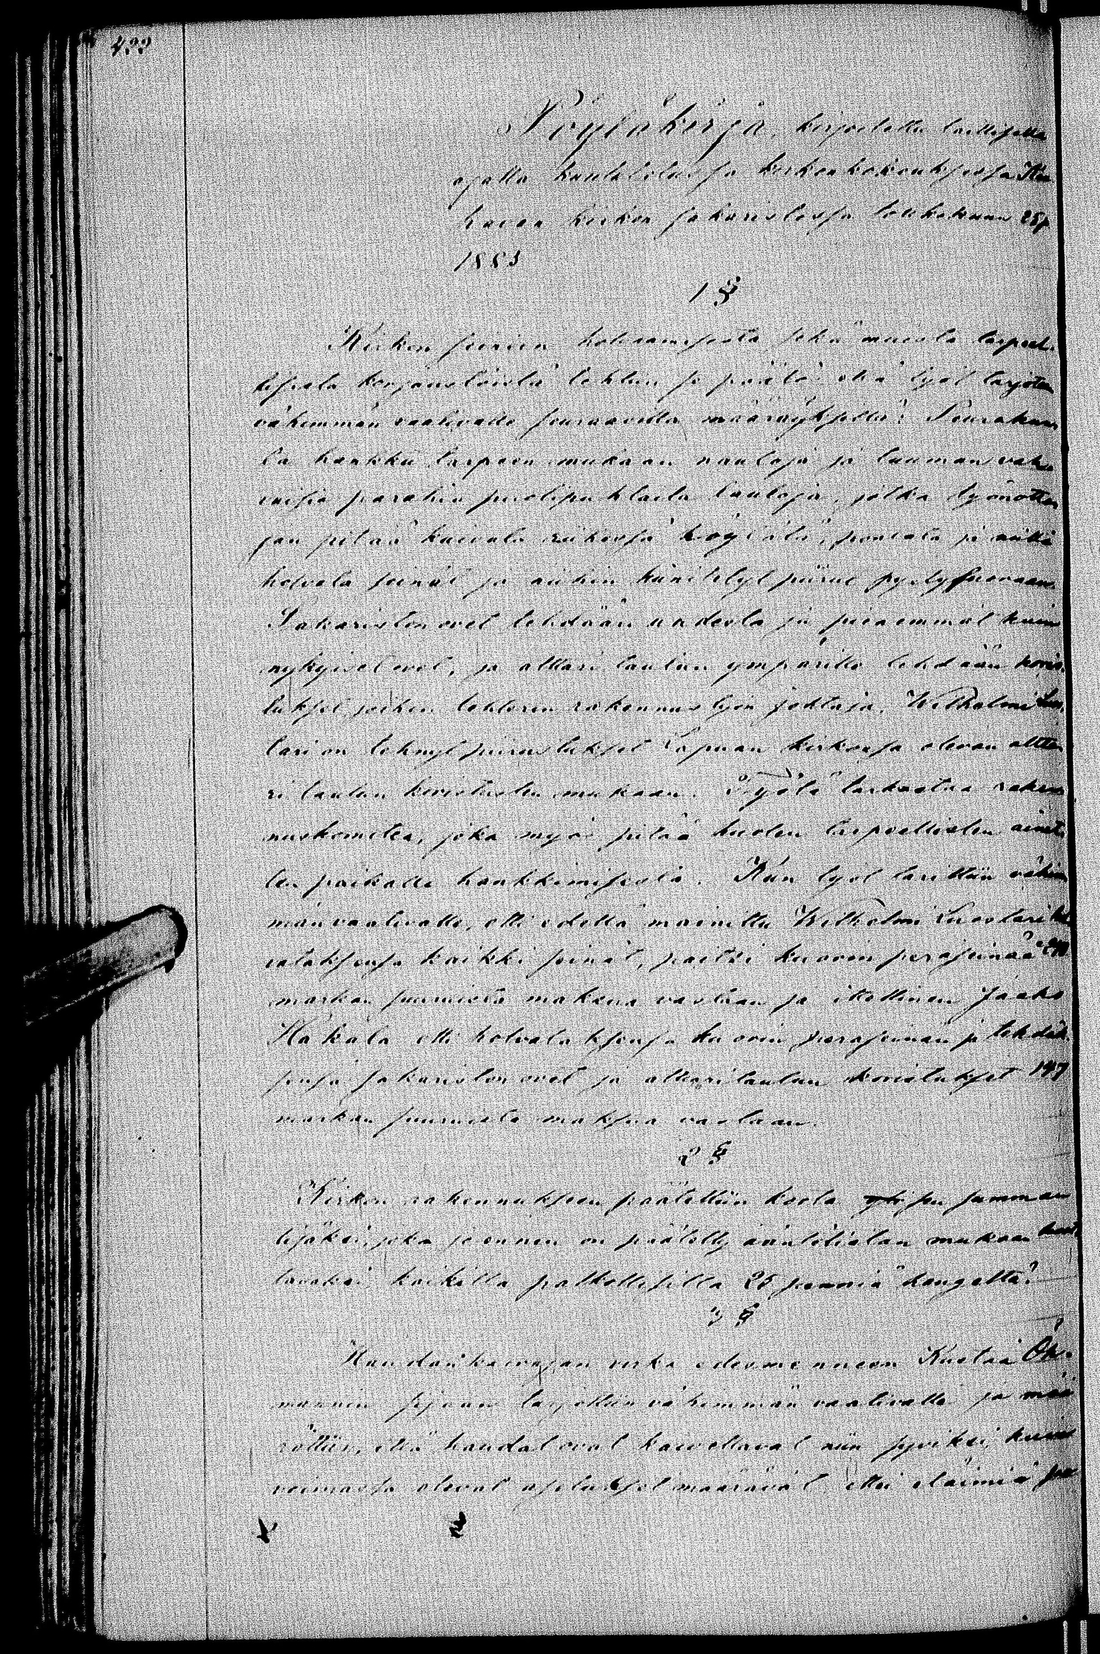 433
Pöytäkirja, kirjoitettu laillisella
ajalla kuulutetussa kirkonkokouksessa Kau
havan kirkon sakaristossa lokakuun 25 p
1883
1 §
Kirkon seinien holvaamisesta sekä muista tarpeel-
lisista korjaustöistä tehtiin se päätös että työt tarjotaan
vähemmän vaativalle seuraavilla määräyksillä: Seurakun
ta hankkii tarpeen mukaan nauloja ja tuuman vah
vuisia parahia puolipuhtaita lautoja, jotka työnotta
jan pitää kuivata riihessä höylätä, pontata ja niillä
holvata seinät ja niihin kiinitetyt piirut pystysuoraan.
Sakariston ovet tehdään uudesta ja pienemmät kuin
nykyiset ovet, ja alttari taulun ympärille tehdään koris
tukset joihin tohtorin rakennustyön johtaja, Wilhelmi Luo
lari on tehnyt piirustukset Lapuan kirkossa olevan altta
ri taulun koristusten mukaan. Työtä tarkastaa raken
nuskomitea, joka myös pitää huolen tarpeellisten ainet
ten paikalle hankkimisesta. Kun työt tarittiin vähem
män vaativalle, otti edellä mainittu Wilhelmi Luostari hol
vataksensa kaikki seinät, paitsi kuorin peräseinää
markan suuruista maksua vastaan ja itsellinen Jaako
Hakala otti holvataksensa kuorin peräseinän ja tehdäk
sensä sakariston ovet ja alttaritaulun koristukset 197
markan suuruista maksua vastaan.
2 §
Kirkon rakennukseen päätettiin koota sen summan
lisäksi, joka jo ennen on päätetty manttalin mukaan
kaikilta palkollisilta 25 penniä hengeltä.
3 §
Haudankaivajan virka edesmenneen Kustaa Öh-
mannin sijaan tarjottiin vähemmän vaativalle ja mää
rättiin, että haudat ovat kaivettavat niin syviksi, kuin
voimassa olevat asetukset määräävät, ettei eläimiä saa